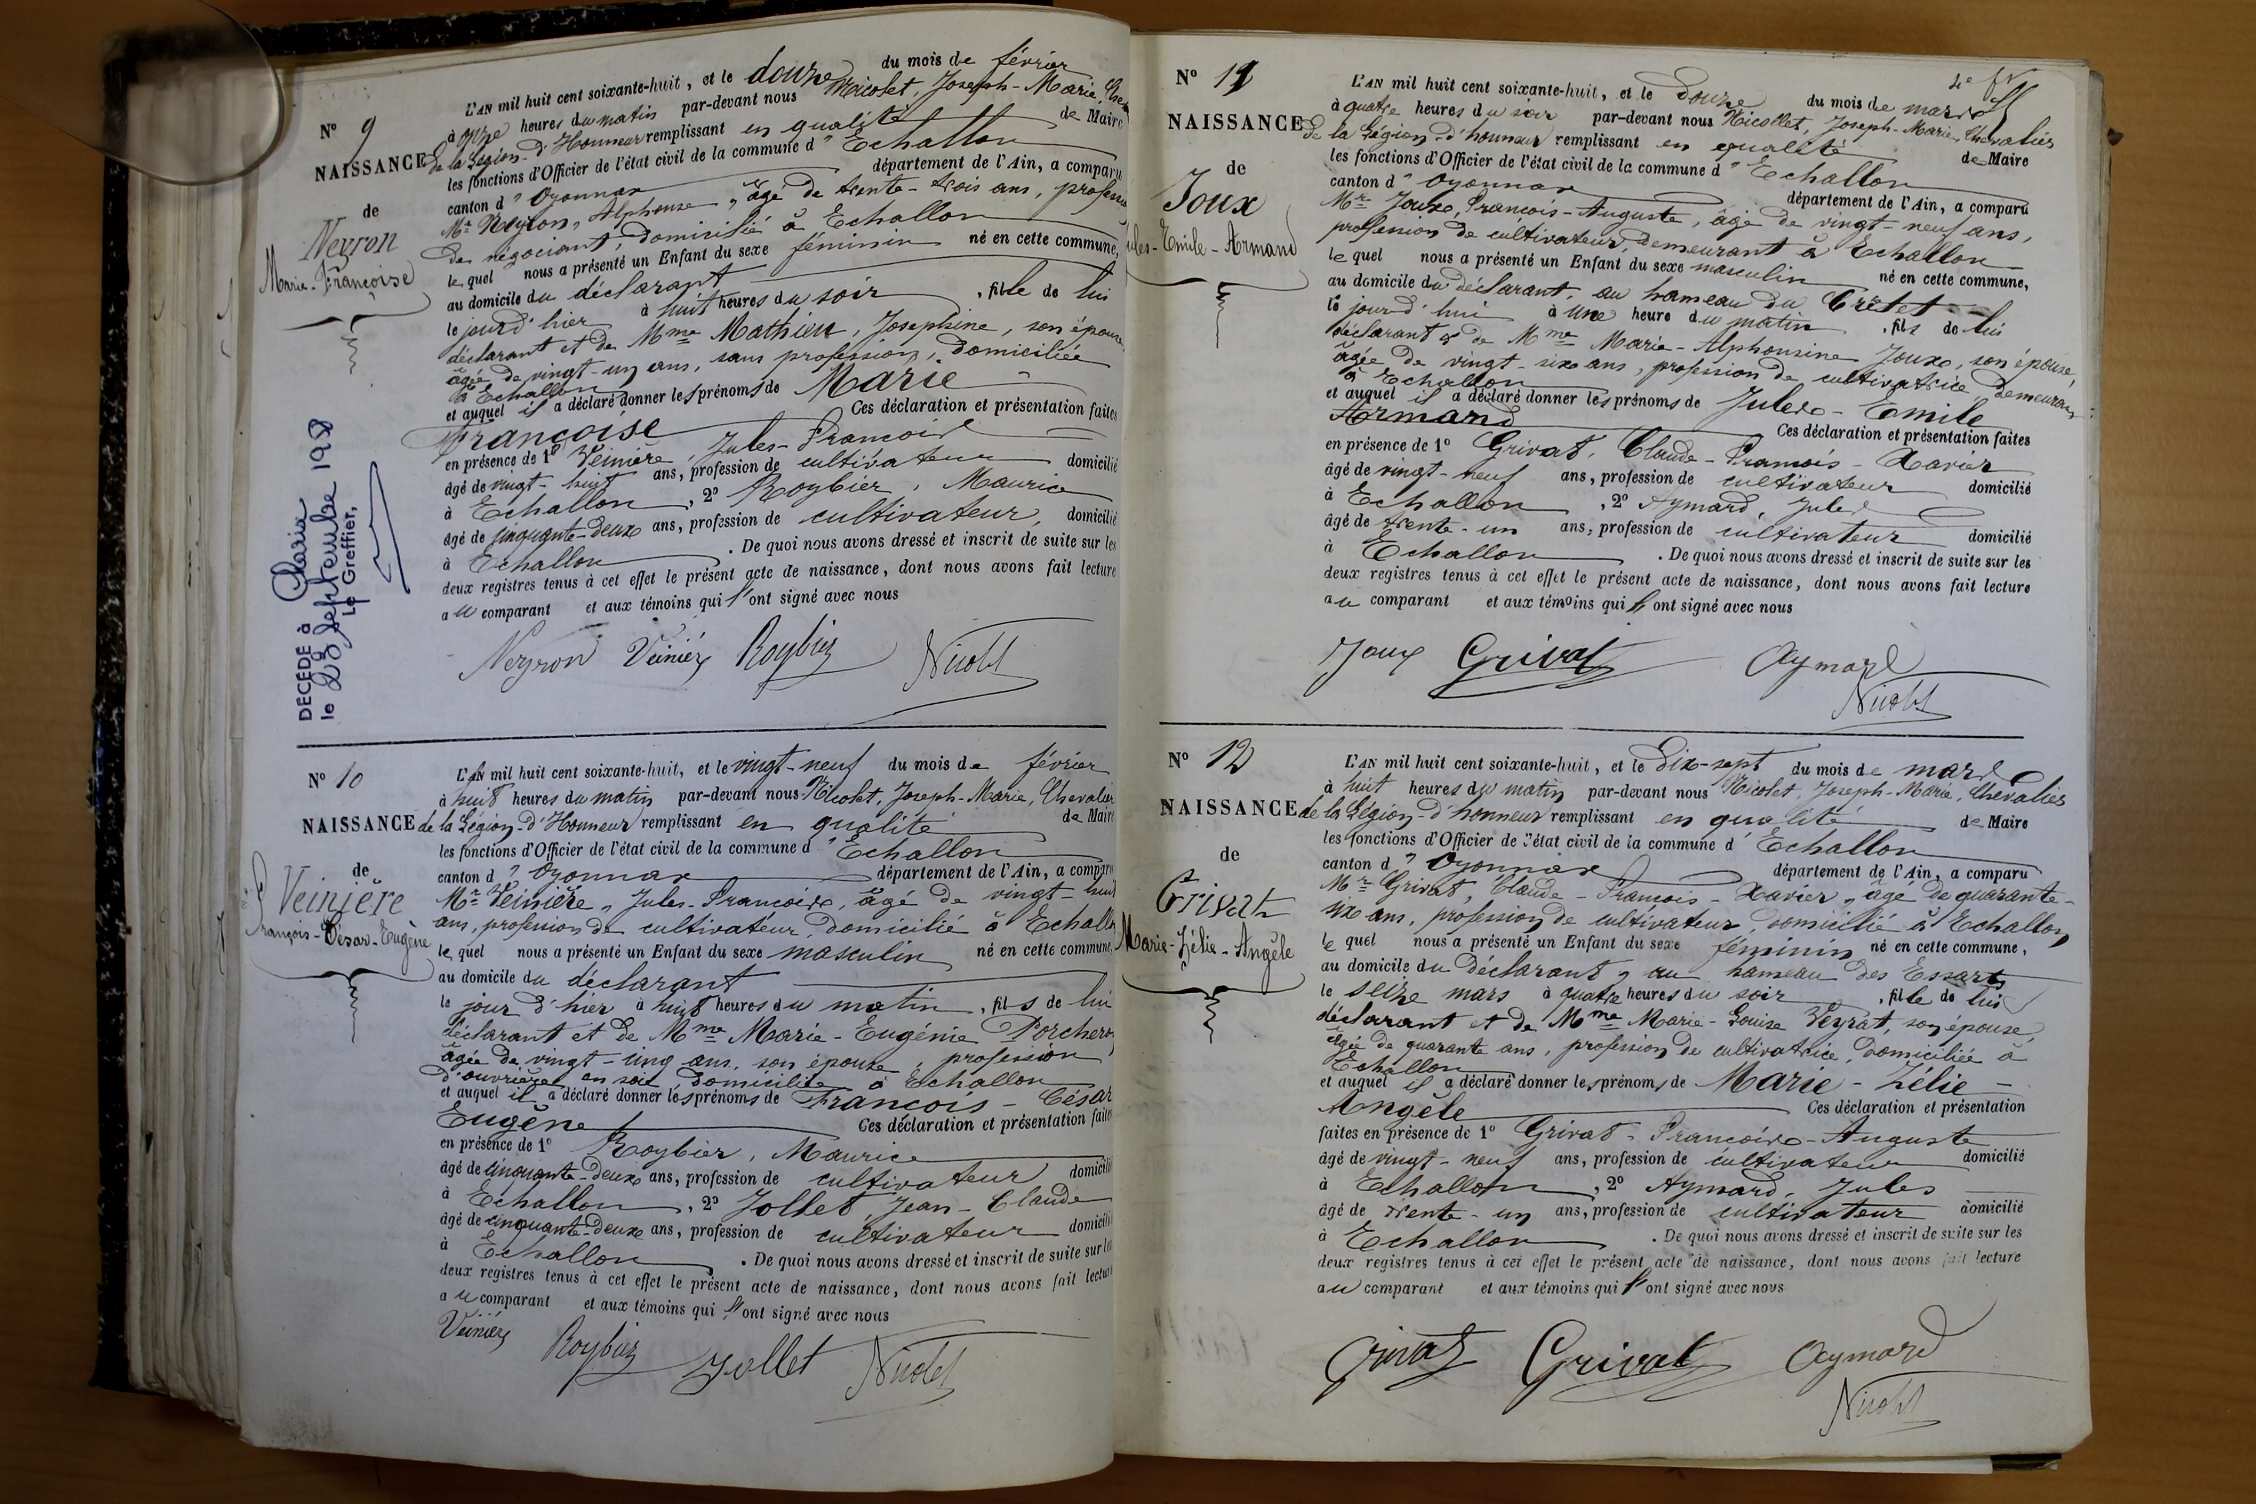 N° 9
NAISSANCE
de
Neyron
Marie-Françoise
DÉCÉDÉ à
le 23 septembre
Le Greffier,
L'AN mil huit cent soixante-huit, et le douze du mois de février
à onze heures du matin par-devant nous Nicolet, Joseph-Marie,
de la Légion-d'Honneur remplissant en qualité de Maire
les fonctions d'Officier de l'état civil de la commune d'' Echallon
canton d'' Oyonnax département de l'Ain, a comparu
Mr Neyron, Alphonse, âgé de trente-trois ans, profession
de négociant, domicilié à Echallon
le quel nous a présenté un Enfant du sexe féminin né en cette commune,
au domicile du déclarant
le jour d'hier à huit heures du soir, fille de lui
déclarant et de Mme Mathieu, Josephine, son épouse,
âgée de vingt-un ans, sans profession, domiciliée
à Echallon
et auquel il a déclaré donner les prénoms de Marie
Françoise Ces déclaration et présentation faites
en présence de 1° Veinière, Jules-François
âgé de vingt-huit ans, profession de cultivateur domicilié
à Echallon, 2° Roybier, Maurice
âgé de cinquante-deux ans, profession de cultivateur, domicilié
à Echallon. De quoi nous avons dressé et inscrit de suite sur les
deux registres tenus à cet effet le présent acte de naissance, dont nous avons fait lecture
au comparant et aux témoins qui l'ont signé avec nous
Neyron Veinière Roybier Nicolet
N° 10
NAISSANCE
de
Veinière
François-César-Eugène
L'AN mil huit cent soixante-huit, et le vingt-neuf du mois de février
à huit heures du matin par-devant nous Nicolet, Joseph-Marie, Chevalier
de la Légion-d'Honneur remplissant en qualité de Maire
les fonctions d'Officier de l'état civil de la commune d'' Echallon
canton d'' Oyonnax département de l'Ain, a comparu
Mr Veinière, Jules-François, âgé de vingt-huit
ans, profession de cultivateur domicilié à Echallon
le quel nous a présenté un Enfant du sexe masculin né en cette commune,
au domicile du déclarant
le jour d'hier à huit heures du matin, fils de lui
déclarant et de Mme Marie-Eugénie Porcheron
âgée de vingt-cinq ans, son épouse, profession
d'ouvrière en soie, domiciliée à Echallon
et auquel il a déclaré donner les prénoms de François-César
Eugène Ces déclaration et présentation faites
en présence de 1° Roybier, Maurice
âgé de cinquante-deux ans, profession de cultivateur domicilié
à Echallon, 2° Jollet, Jean-Claude
âgé de cinquante-deux ans, profession de cultivateur domicilié
à Echallon. De quoi nous avons dressé et inscrit de suite sur les
deux registres tenus à cet effet le présent acte de naissance, dont nous avons fait lecture
au comparant et aux témoins qui l'ont signé avec nous
Veinière Roybier Jollet Nicolet
N° 11
NAISSANCE
de
Joux
Jules-Emile-Armand
L'AN mil huit cent soixante-huit, et le douze du mois de mars
à quatre heures du soir par-devant nous Nicollet, Joseph-Marie, Chevalier
de la Légion-d'honneur remplissant en qualité de Maire
les fonctions d'Officier de l'état civil de la commune d'' Echallon
canton d'' Oyonnax département de l'Ain, a comparu
Mr Joux, François-Auguste, âgé de vingt-neuf ans,
profession de cultivateur, demeurant à Echallon
le quel nous a présenté un Enfant du sexe masculin né en cette commune,
au domicile du déclarant, au hameau du Crétet
le jourd'hui à une heure du matin, fils de lui
déclarant & de Mme Marie-Alphonsine Joux, son épouse,
âgée de vingt-six ans, profession de cultivatrice demeurant
à Echallon
et auquel il a déclaré donner les prénoms de Jules-Emile
Armand Ces déclaration et présentation faites
en présence de 1° Grivat, Claude-François-Xavier
âgé de vingt-neuf ans, profession de cultivateur domicilié
à Echallon, 2° Aymard, Jules
âgé de trente-un ans, profession de cultivateur domicilié
à Echallon. De quoi nous avons dressé et inscrit de suite sur les
deux registres tenus à cet effet le présent acte de naissance, dont nous avons fait lecture
au comparant et aux témoins qui l'ont signé avec nous
Joux Grivat Aymard
Nicolet
N° 12
NAISSANCE
de
Grivat
Marie-Zélie-Angèle
L'AN mil huit cent soixante-huit, et le Dix-sept du mois de mars
à huit heures du matin par-devant nous Nicolet, Joseph-Marie, Chevalier
de la Légion-d'honneur remplissant en qualité de Maire
les fonctions d'Officier de l'état civil de la commune d' Echallon
canton d'' Oyonnax département de l'Ain, a comparu
Mr Grivat, Claude-François-Xavier, âgé de quarante-
six ans, profession de cultivateur, domicilié à Echallon
le quel nous a présenté un Enfant du sexe féminin né en cette commune,
au domicile du déclarant, au hameau des Essarts
le seize mars à quatre heures du soir, fille de lui
déclarant et de Mme Marie-Louise Veyrat, son épouse,
âgée de quarante ans, profession de cultivatrice, domiciliée à
Echallon
et auquel il a déclaré donner les prénoms de Marie-Zélie-
Angèle Ces déclaration et présentation
faites en présence de 1° Grivat-François-Auguste
âgé de vingt-neuf ans, profession de cultivateur domicilié
à Echallon, 2° Aymard, Jules
âgé de trente-un ans, profession de cultivateur domicilié
à Echallon. De quoi nous avons dressé et inscrit de suite sur les
deux registres tenus à cet effet le présent acte de naissance, dont nous avons fait lecture
au comparant et aux témoins qui l'ont signé avec nous
Grivat Grivat Aymard
Nicolet